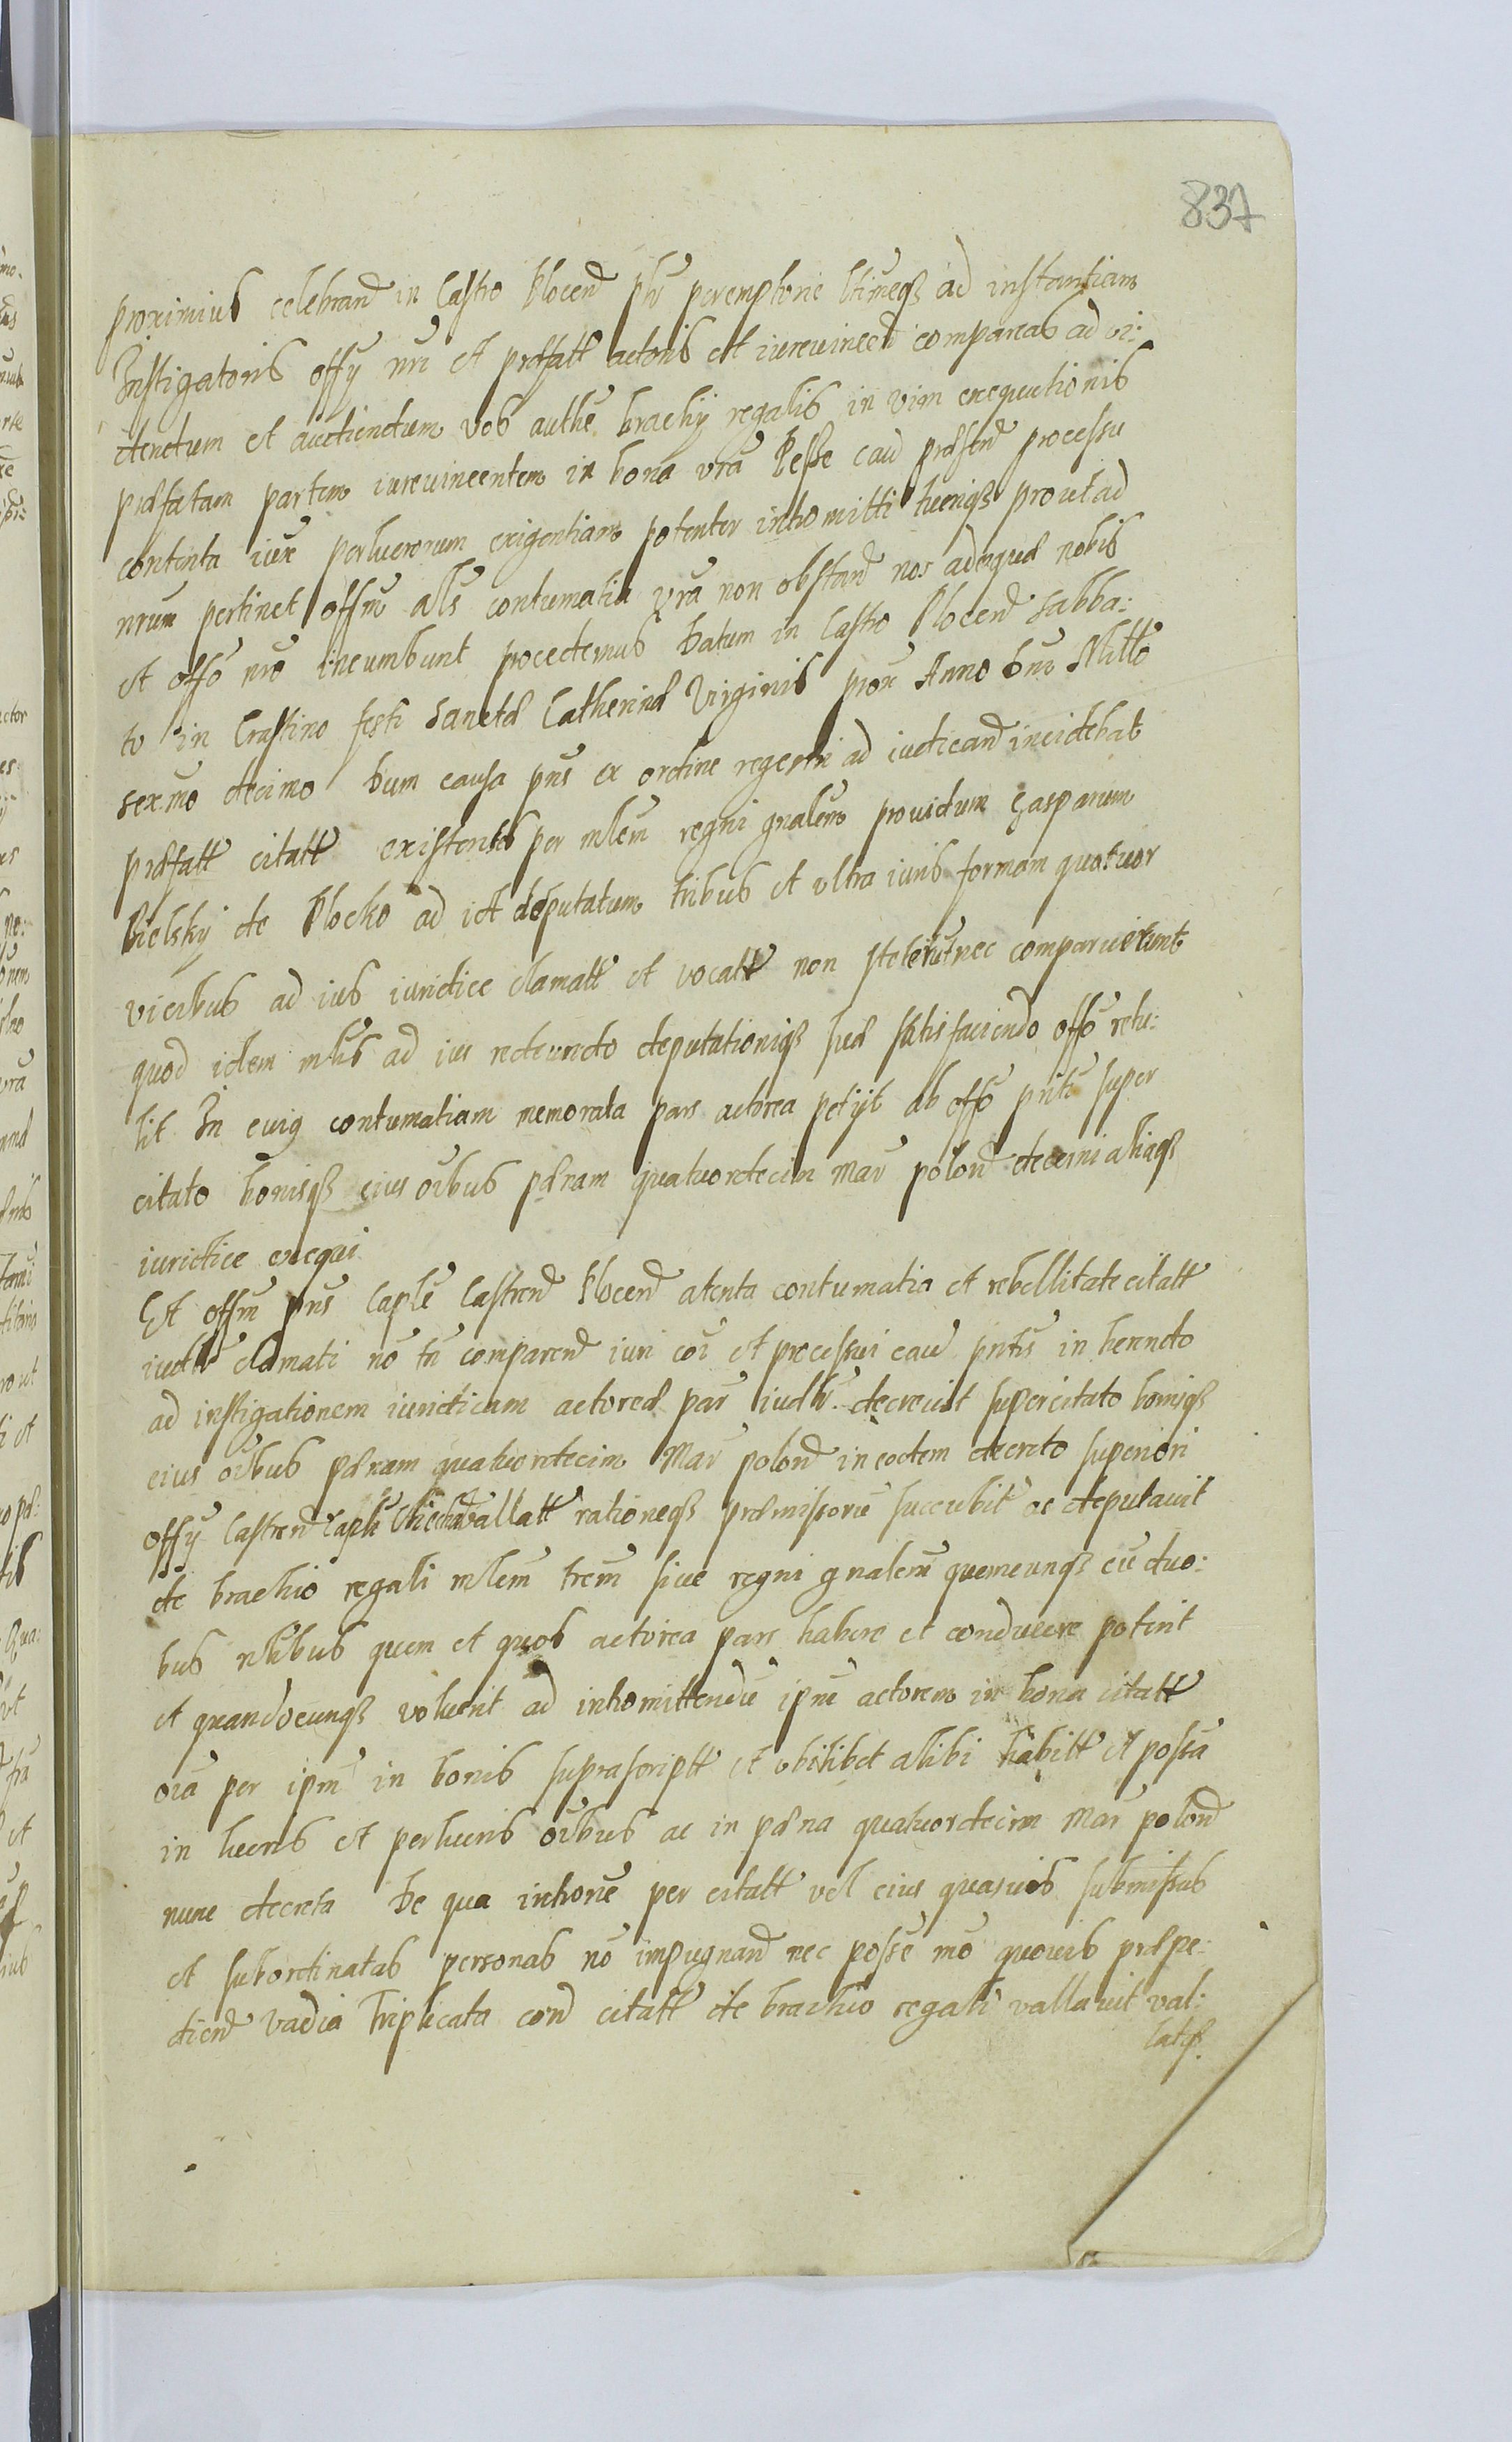 837
proximius celebrand in Castro Plocen plr peremptorie ltimeqз ad instantiam
Instigatoris offy nri et præfatt actoris et iureuincen compareas ad vi:
dendum et audiendum vos authe brachij regalis in vim exequutionis
præfatam partem iureuincentem in bona vra Pesse caū præsen processu
contenta iux perlucrorum exigentiam potenter intromitti tueriqз prout ad
nrum pertinet offm als contumatia vra non obstan nos ad æquæ nobis
et offo nro incumbunt procedemus Datum in Castro Plocen Sabba:
to in Crastino festi Sanctæ Catherinæ Virginis prox Anno Dni Millo
sexmo decimo Dum causa pns ex ordine regestri ad iudican incidebat
præfatt citatt existentes per mlem regni gnalem prouidum Gasparum
Bielsky de Plocko ad id deputatum tribus et vltra iuris formam quatuor
vicibus ad ius iuridice clamatt et vocatt non steterūt nec comparuerunt
quod idem mlis ad ius redeundo deputationiqз suæ satisfaciendo offo retu:
lit In cuiq contumatiam memorata pars actorea petijt ab offo pnti super
citato bonisqз eius oībus pænam quatuordecim mar polon decerni aliaqз
iuridice exequi
Et offm pns Caple Castren Plocen atenta contumatia et rebellitate citatt
iudlr clamati nō tn comparen iuri coī et processui caū pntis in herendo
ad instigationem iuridicam actoreæ par iudlr decreuit super citato bonisqз
eius oībus pænam quatuordecim Mar polon in eodem decreto superiori
offy Castren Caple vallatt rationeqз præmissorū succubit ac deputauit
de brachio regali mlem trem siue regni gnalem quemcunqз cū duo:
bus nlibus quem et quos actorea pars habere et conducere poterit
et quandocunqз voluerit ad intromittendū ipm actorem in bona citatt
oīa per ipm in bonis suprascriptt et vbilibet alibi habitt et possa
in lucris et perlucris oībus ac in pæna quatuordecim Mar polon
nunc decreta De qua introne per citatt vel eius quasuis submissas
et subordinatas personas nō impugnan nec posse mō quouis præpe:
dien vadia triplicata con citatt de brachio regali vallauit val:
latis